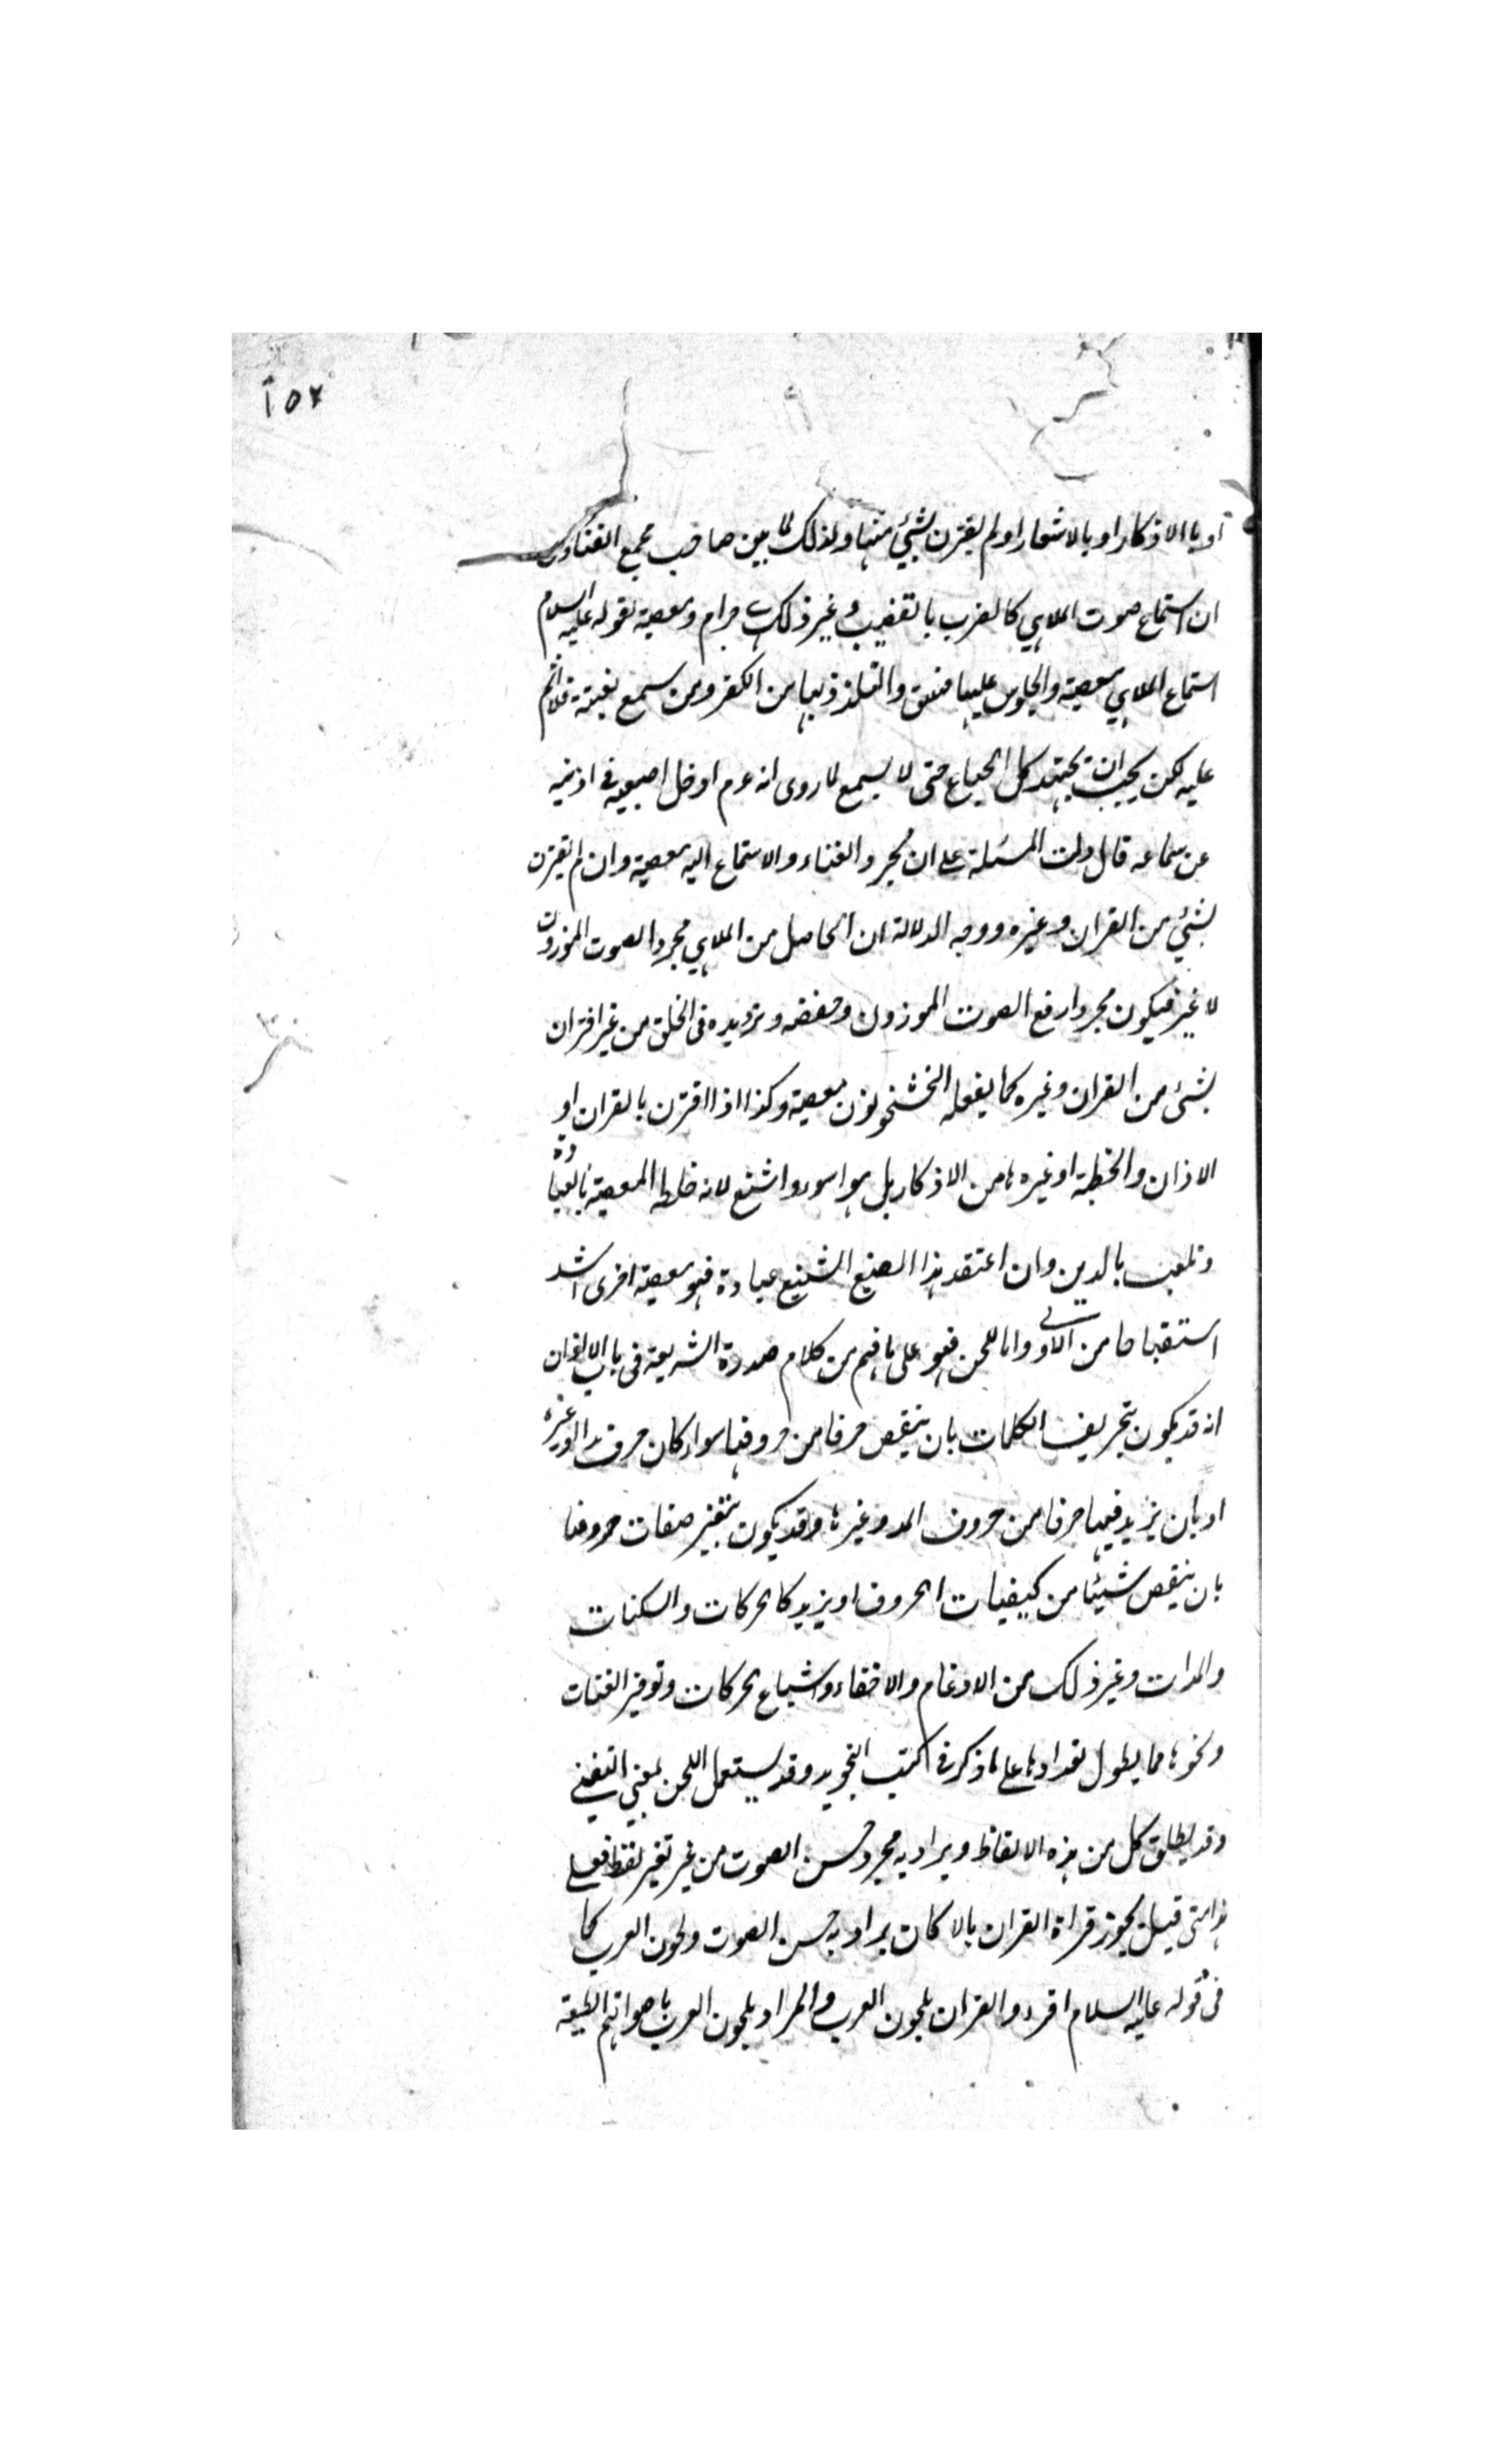 ١٥٢
او بالاذكار او بالاشعار او لم يقترن بشئ منها ولذلك لما بين صاحب مجمع الفتاوى
ان استماع صوت الملاهي كالضرب بالقضيب وغير ذلك حرام ومعصية لقوله عليه السلام
استماع الملاهي معصية والجلوس عليها فسق والتلذذ بها من الكفر ومن سمع بغتة فلا اثم
عليه لكن يجب ان يجتهد كل الجهد حتى لا يسمع لما روى انه عم ادخل اصبعيه في اذنيه
عن سماعه قال دلت المسئلة على ان مجرد الغناء والاستماع اليه معصية وان لم يقترن
بشئ من القران وغيره ووجه الدلالة ان الحاصل من الملاهي مجرد الصوت الموزون
لا غير فيكون مجرد رفع الصوت الموزون وخفضه وترديده فى الحلق من غير اقتران
بشئ من القران وغيره كما يفعله معصية وكذا اذا اقترن بالقران او
الاذان والخطبة او غيرها من الاذكار بل هو اسوء واشنع لانه خلط المعصية بالعبادة
وتلعب بالدين وان اعتقد هذا الصنيع الشنيع عبادة فهو معصية اخرى اشد
استقباحا من الاولى واما اللحن فهو على ما فهم من كلام صدر الشريعة فى باب الاذان
انه قد يكون بتحريف الكلمات بان ينقص حرفا من حروفها سواء كان حرف مد او غيره
او بان يزيد فيها حرفا من حروف المد وغيرها وقد يكون بتغير صفات حروفها
بان ينقص شيئا من كيفيات الحروف او يزيد كالحركات والسكنات
والمدات وغير ذلك من الادغام والاخفاء واشباع الحركات وتوفير الغنات
ونحوها مما يطول تعدادها على ما ذكر فى كتب التجويد وقد يستعمل اللحن بمعنى التغنى
وقد يطلق كل من هذه الالفاظ ويراد به مجرد حسن الصوت من غير تغير لفظ فعلى
هذا متى قيل يجوز قراة القران بالالحان يراد به حسن الصوت ولحون العرب كما
فى قوله عليه السلام اقرءوا القران بلحون العرب والمراد بلحون العرب باصواتهم الطيبة